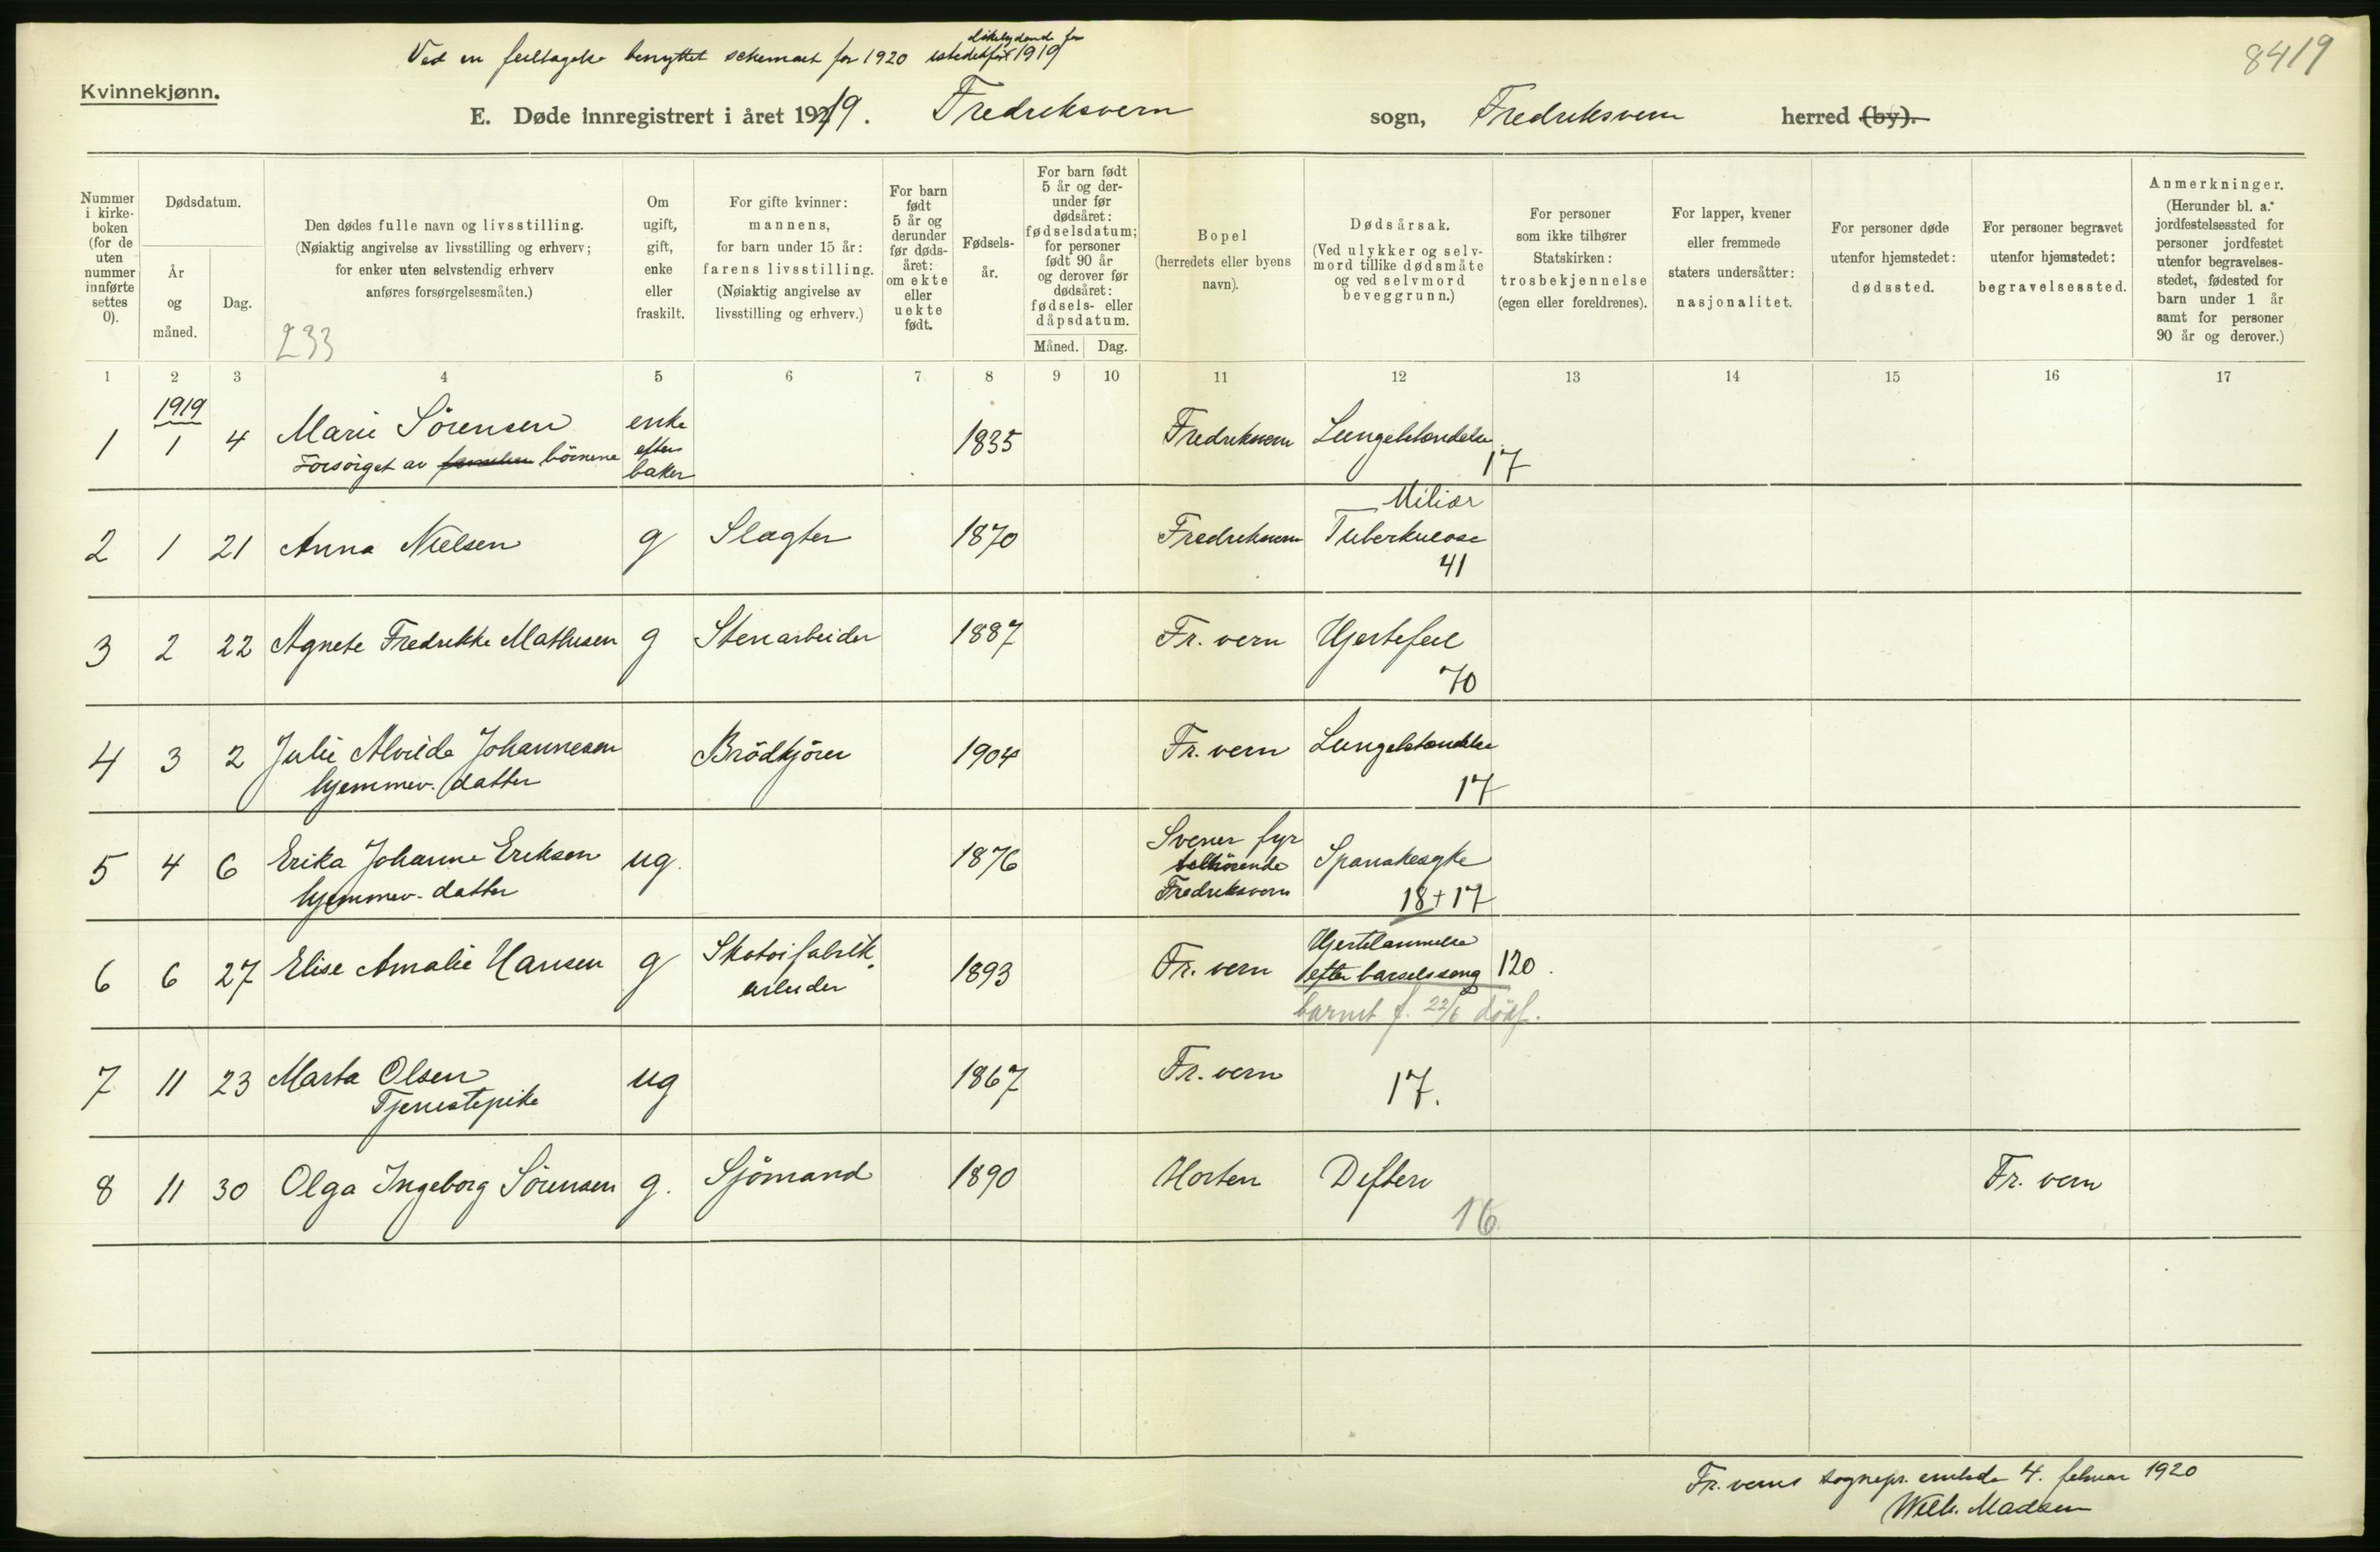 likelydende for
Ved en feiltagelse benyttet schemaet for 1920 istedetfor 1919
8419
Kvinnekjønn.
E. Døde innregistrert i året 1919. Fredriksvern sogn, Fredriksvern herred (by).
Nummer i kirkeboken (for de uten nummer innførte settes 0).
Dødsdatum.
År og måned.
Dag.
Den dødes fulle navn og livsstilling.
(Nøiaktig angivelse av livsstilling og erhverv;
for enker uten selvstendig erhverv
anføres forsørgelsesmåten.)
233
Om ugift, gift, enke eller fraskilt.
For gifte kvinner:
mannens,
for barn under 15 år:
farens livsstilling.
(Nøiaktig angivelse av
livsstilling og erhverv.)
For barn født 5 år og derunder før dødsåret: om ekte eller uekte født.
Fødselsår.
For barn født 5 år og derunder før dødsåret: fødselsdatum; for personer født 90 år og derover før dødsåret: fødsels- eller dåpsdatum.
Måned. Dag.
Bopel
(herredets eller byens
navn).
Dødsårsak.
(Ved ulykker og selvmord tillike dødsmåte og ved selvmord beveggrunn.)
For personer
som ikke tilhører
Statskirken:
trosbekjennelse
(egen eller foreldrenes).
For lapper, kvener
eller fremmede
staters undersåtter:
nasjonalitet.
For personer døde
utenfor hjemstedet:
dødssted.
For personer begravet
utenfor hjemstedet:
begravelsessted.
Anmerkninger.
(Herunder bl. a.
jordfestelsessted for
personer jordfestet
utenfor begravelses-
stedet, fødested for
barn under 1 år
samt for personer
90 år og derover.)
1 2 3 4 5 6 7 8 9 10 11 12 13 14 15 16 17
1919
1 1 4 Marie Sörensen enke 1835 Fredriksvern Lungebetændelse
Forsörget av familien börnene efter baker 17
Miliær
2 1 21 Anna Nielsen g Slagter 1870 Fredriksvern Tuberkulose
41
3 2 22 Agnete Fredrikke Mathisen g Stenarbeider 1887 Fr. vern Hjertefeil
70
4 3 2 Julie Alvilde Johannesen Brödkjörer 1904 Fr. vern Lungebetændelse
hjemmev. datter 17
5 4 6 Erika Johanne Eriksen ug. 1876 Svener fyr tilhörende Fredriksvern Spanskesyke
hjemmev. datter 18+17
6 6 27 Elise Amalie Hansen g Skotöifabrik. arbeider 1893 Fr. vern Hjertelammelse efter barselsseng 120.
barnet f. 22/6 dödf.
7 11 23 Marta Olsen ug 1867 Fr. vern 17.
Tjenestepike
8 11 30 Olga Ingeborg Sörensen g. Sjömand 1890 Horten Difteri Fr. vern
16.
Fr. verns sognepr. embede 4. februar 1920
Wilh. Madsen